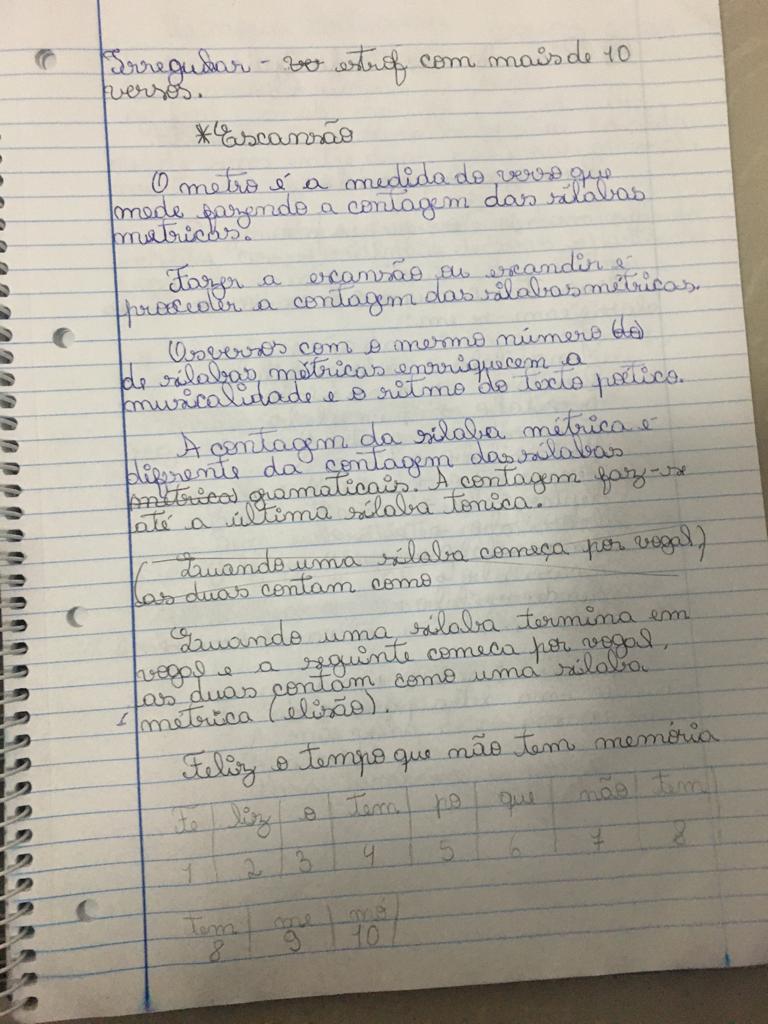 Irregular - ve estrof com mais de 10
versos.
*Escansão
O metro é a medida do verso que
mede fazendo a contagem das sílabas
metricas.
Fazer a escansão ou escandir é
proceder a contagem das sílabas métricas.
Os versos com o mesmo número (do)
de sílabas métricas enrriquecem a
musicalidade e o ritmo do texto poético.
A contagem da sílaba métrica é
diferente da contagem das sílabas
métricas gramaticais. A contagem faz-se
até a última sílaba tonica.
(Quando uma sílaba começa por vogal,)
(as duas contam como
Quando uma sílaba termina em
vogal e a seguinte comeca por vogal,
as duas contam como uma sílaba
métrica (elisão).
Feliz o tempo que não tem memória
Fe liz o tem po que não tem
1 2 3 4 5 6 7 8
tem me mó
8 9 10